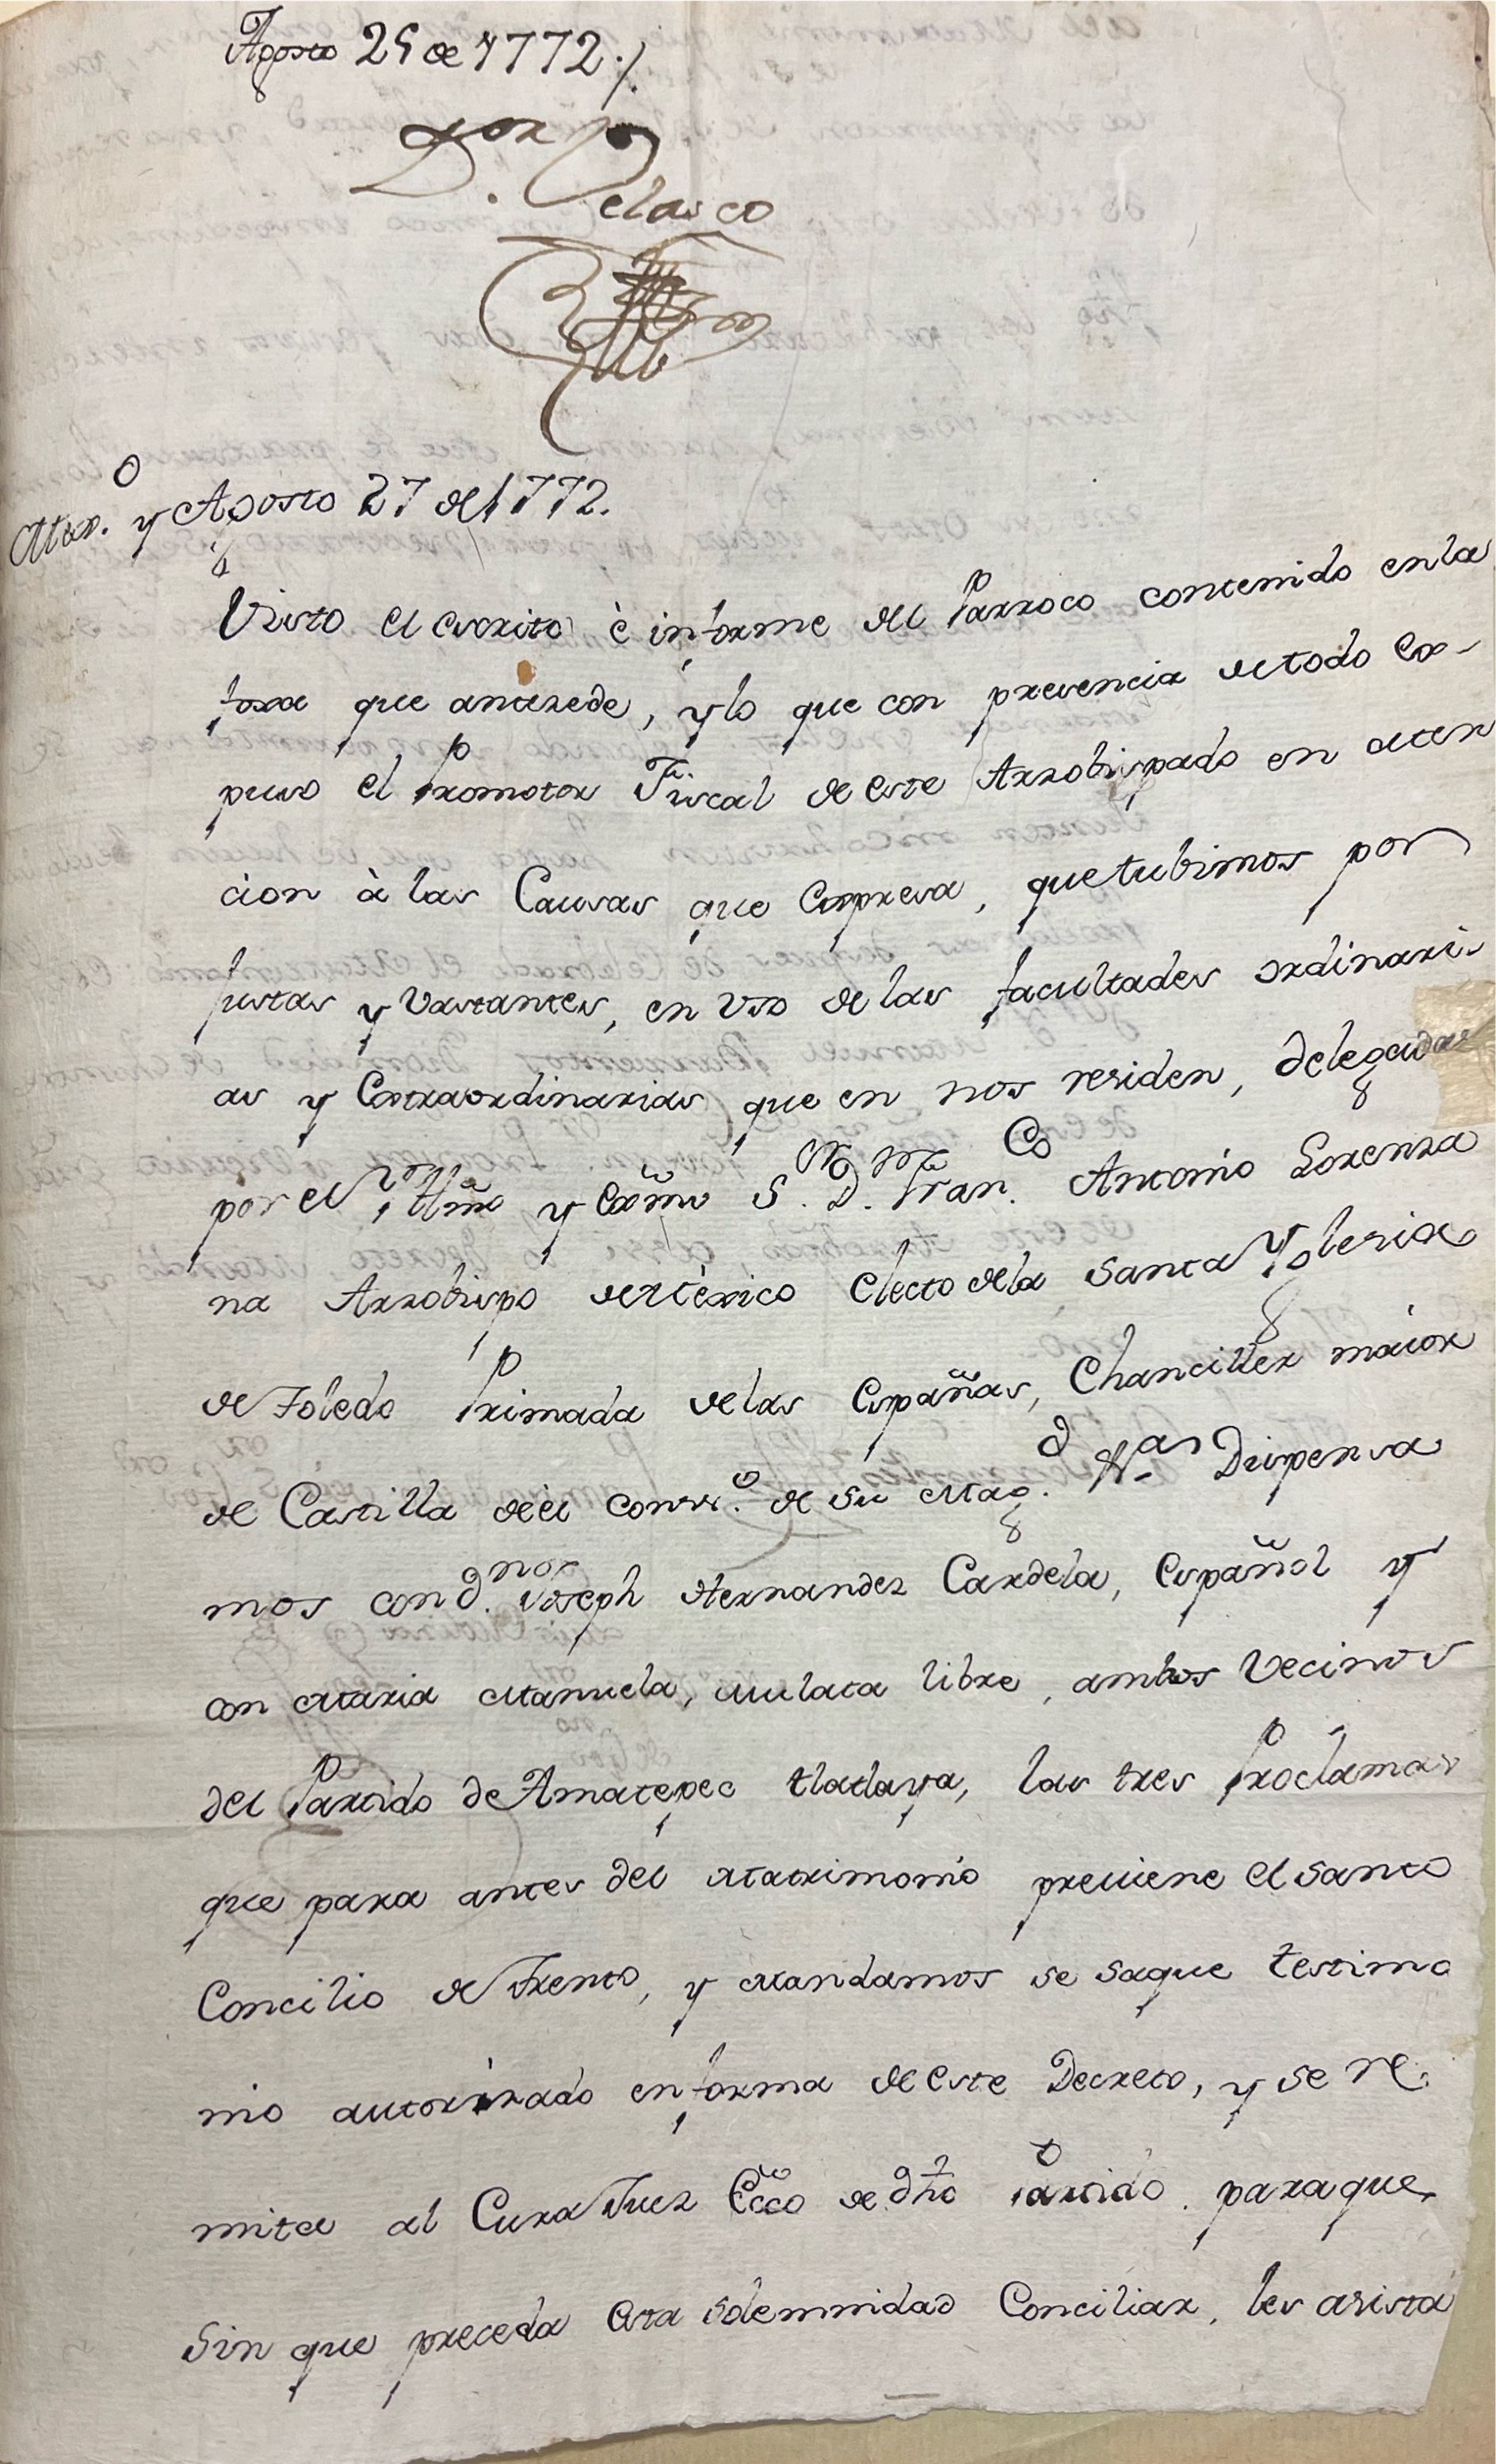 Agosto 25 de 1772./.
D.or Velasco
Mex.o y Agosto 27 de 1772.
Visto el escrito è informe del Parroco contenido en la
foxa que antesede, y lo que con presencia de todo ex-
puso el Promotor Fiscal de este Arzobispado en aten
cion à las Causas que expresa, que tubimos por
justas y vastantes, en uso de las facultades ordinari-
as y extraordinarias que en nos residen, delegadas
por el Yllmõ y Exmõ S.or D.n Fran.co Antonio Lorenza
na Arzobispo de Mèxico Electo de la Santa Yglesia
de Toledo Primada de las Españas, Chanciller maior
de Castilla de èl cons.o de su Mag.d &.as Dispensa
mos con d.n Joseph Hernandez Cardela, Español y
con Maria Manuela, mulata libre, ambos Vecinos
del Partido de Amatepec tlatlaya, las tres Proclamas
que para antes del Matrimonio previene el Santo
Concilio de Trento, y Mandamos se saque testimo
nio autorizado en forma de este Decreto, y se re-
mita al Cura Juez Ecco de dho Partido paraque
Sin que preceda esta solemnidad Conciliar, les asista